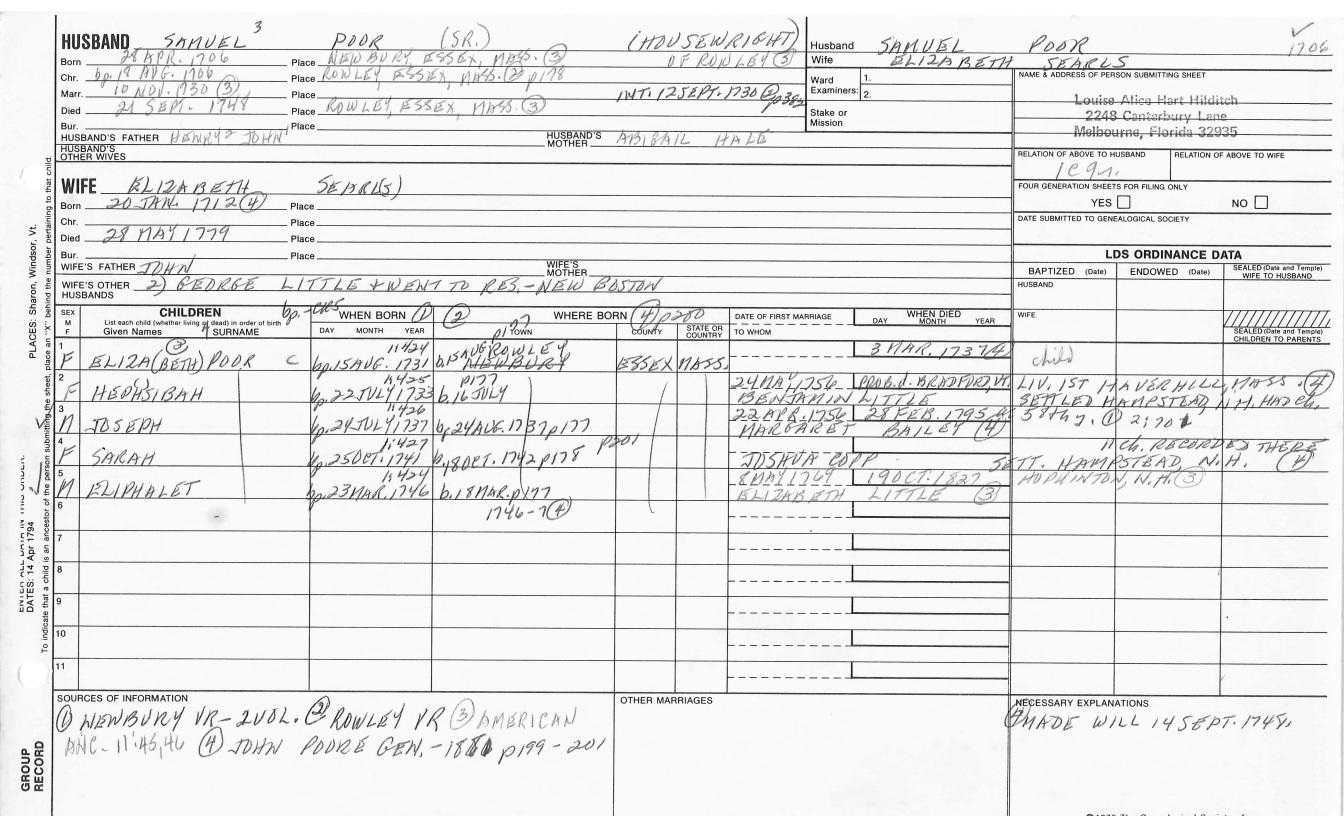 HUSBAND SAMUEL 3 POOR (SR.) (HOUSEWRIGHT)
Born 28 APR. 1706 Place NEWBURY, ESSEX, MASS. (3) OF ROWLEY (3)
Chr. bp. 18 AUG. 1706 Place ROWLEY, ESSEX, MASS. (2) p178
Marr. 10 NOV. 1730 (3) Place INT. 12 SEPT. 1730
Died 21 SEPT. 1748 Place ROWLEY, ESSEX, MASS. (3)
Bur. Place
HUSBAND'S FATHER HENRY 2 JOHN 1 HUSBAND'S MOTHER ABIGAIL HALE
HUSBAND'S OTHER WIVES
WIFE ELIZABETH SEARL(S)
Born 20 JAN. 1712 (4) Place
Chr. Place
Died 28 MAY 1779 Place
Bur. Place
WIFE'S FATHER JOHN WIFE'S MOTHER
WIFE'S OTHER HUSBANDS 2) GEORGE LITTLE + WENT TO RES. - NEW BOSTON
Husband SAMUEL POOR 1706
Wife ELIZABETH SEARLS
Ward Examiners: 1.
2.
Stake or Mission
NAME & ADDRESS OF PERSON SUBMITTING SHEET
Louise Alice Hart Hilditch
2248 Canterbury Lane
Melbourne, Florida 32935
RELATION OF ABOVE TO HUSBAND RELATION OF ABOVE TO WIFE
FOUR GENERATION SHEETS FOR FILING ONLY
YES NO
DATE SUBMITTED TO GENEALOGICAL SOCIETY
LDS ORDINANCE DATA
BAPTIZED (Date) ENDOWED (Date) SEALED (Date and Temple) WIFE TO HUSBAND
HUSBAND
WIFE
SEALED (Date and Temple) CHILDREN TO PARENTS
SEX M F
CHILDREN
List each child (whether living or dead) in order of birth
Given Names SURNAME
bp.-CRS WHEN BORN (1) (2) WHERE BORN (4) p200
DAY MONTH YEAR p177 TOWN COUNTY STATE OR COUNTRY
DATE OF FIRST MARRIAGE
TO WHOM
WHEN DIED
DAY MONTH YEAR
1 11:424 b. 15 AUG ROWLEY 3 MAR. 1737 (4)
F ELIZA (BETH) (3) POOR C bp. 15 AUG. 1731 NEWBURY ESSEX MASS. child
2 11:425 p177 24 MAY 1756 PROB. d. BRADFORD, VT. LIV. 1ST HAVERHILL, MASS. (4)
F HEPHSIBAH bp. 22 JULY 1733 b. 16 JULY BENJAMIN LITTLE SETTLED HAMPSTEAD, N.H. HAD ch.
3 11:426 22 APR. 1756 28 FEB. 1795
M JOSEPH bp. 24 JULY 1737 b. 24 AUG. 1737 p177 MARGARET BAILEY (4)
4 11:427 p201 11 Ch. RECORDED THERE
F SARAH bp. 25 OCT. 1741 b. 18 OCT. 1742 p178 JOSHUA COPP SETT. HAMPSTEAD, N.H. (4)
5 11:424 8 MAY 1769 19 OCT. 1827 HOPKINTON, N.H. (3)
M ELIPHALET bp. 23 MAR. 1746 b. 18 MAR. p177 ELIZABETH LITTLE (3)
6 1746-7 (4)
7
8
9
10
11
SOURCES OF INFORMATION
(1) NEWBURY VR - 2 VOL. (2) ROWLEY VR (3) AMERICAN
ANC. - 11:45,46 (4) JOHN POORE GEN. - p199 - 201
OTHER MARRIAGES
NECESSARY EXPLANATIONS
MADE WILL 14 SEPT. 1748.
PLACES: Sharon, Windsor, Vt.
DATES: 14 Apr 1794
To indicate that a child is an ancestor of the person submitting the sheet, place an "X" behind the number pertaining to that child.
GROUP RECORD